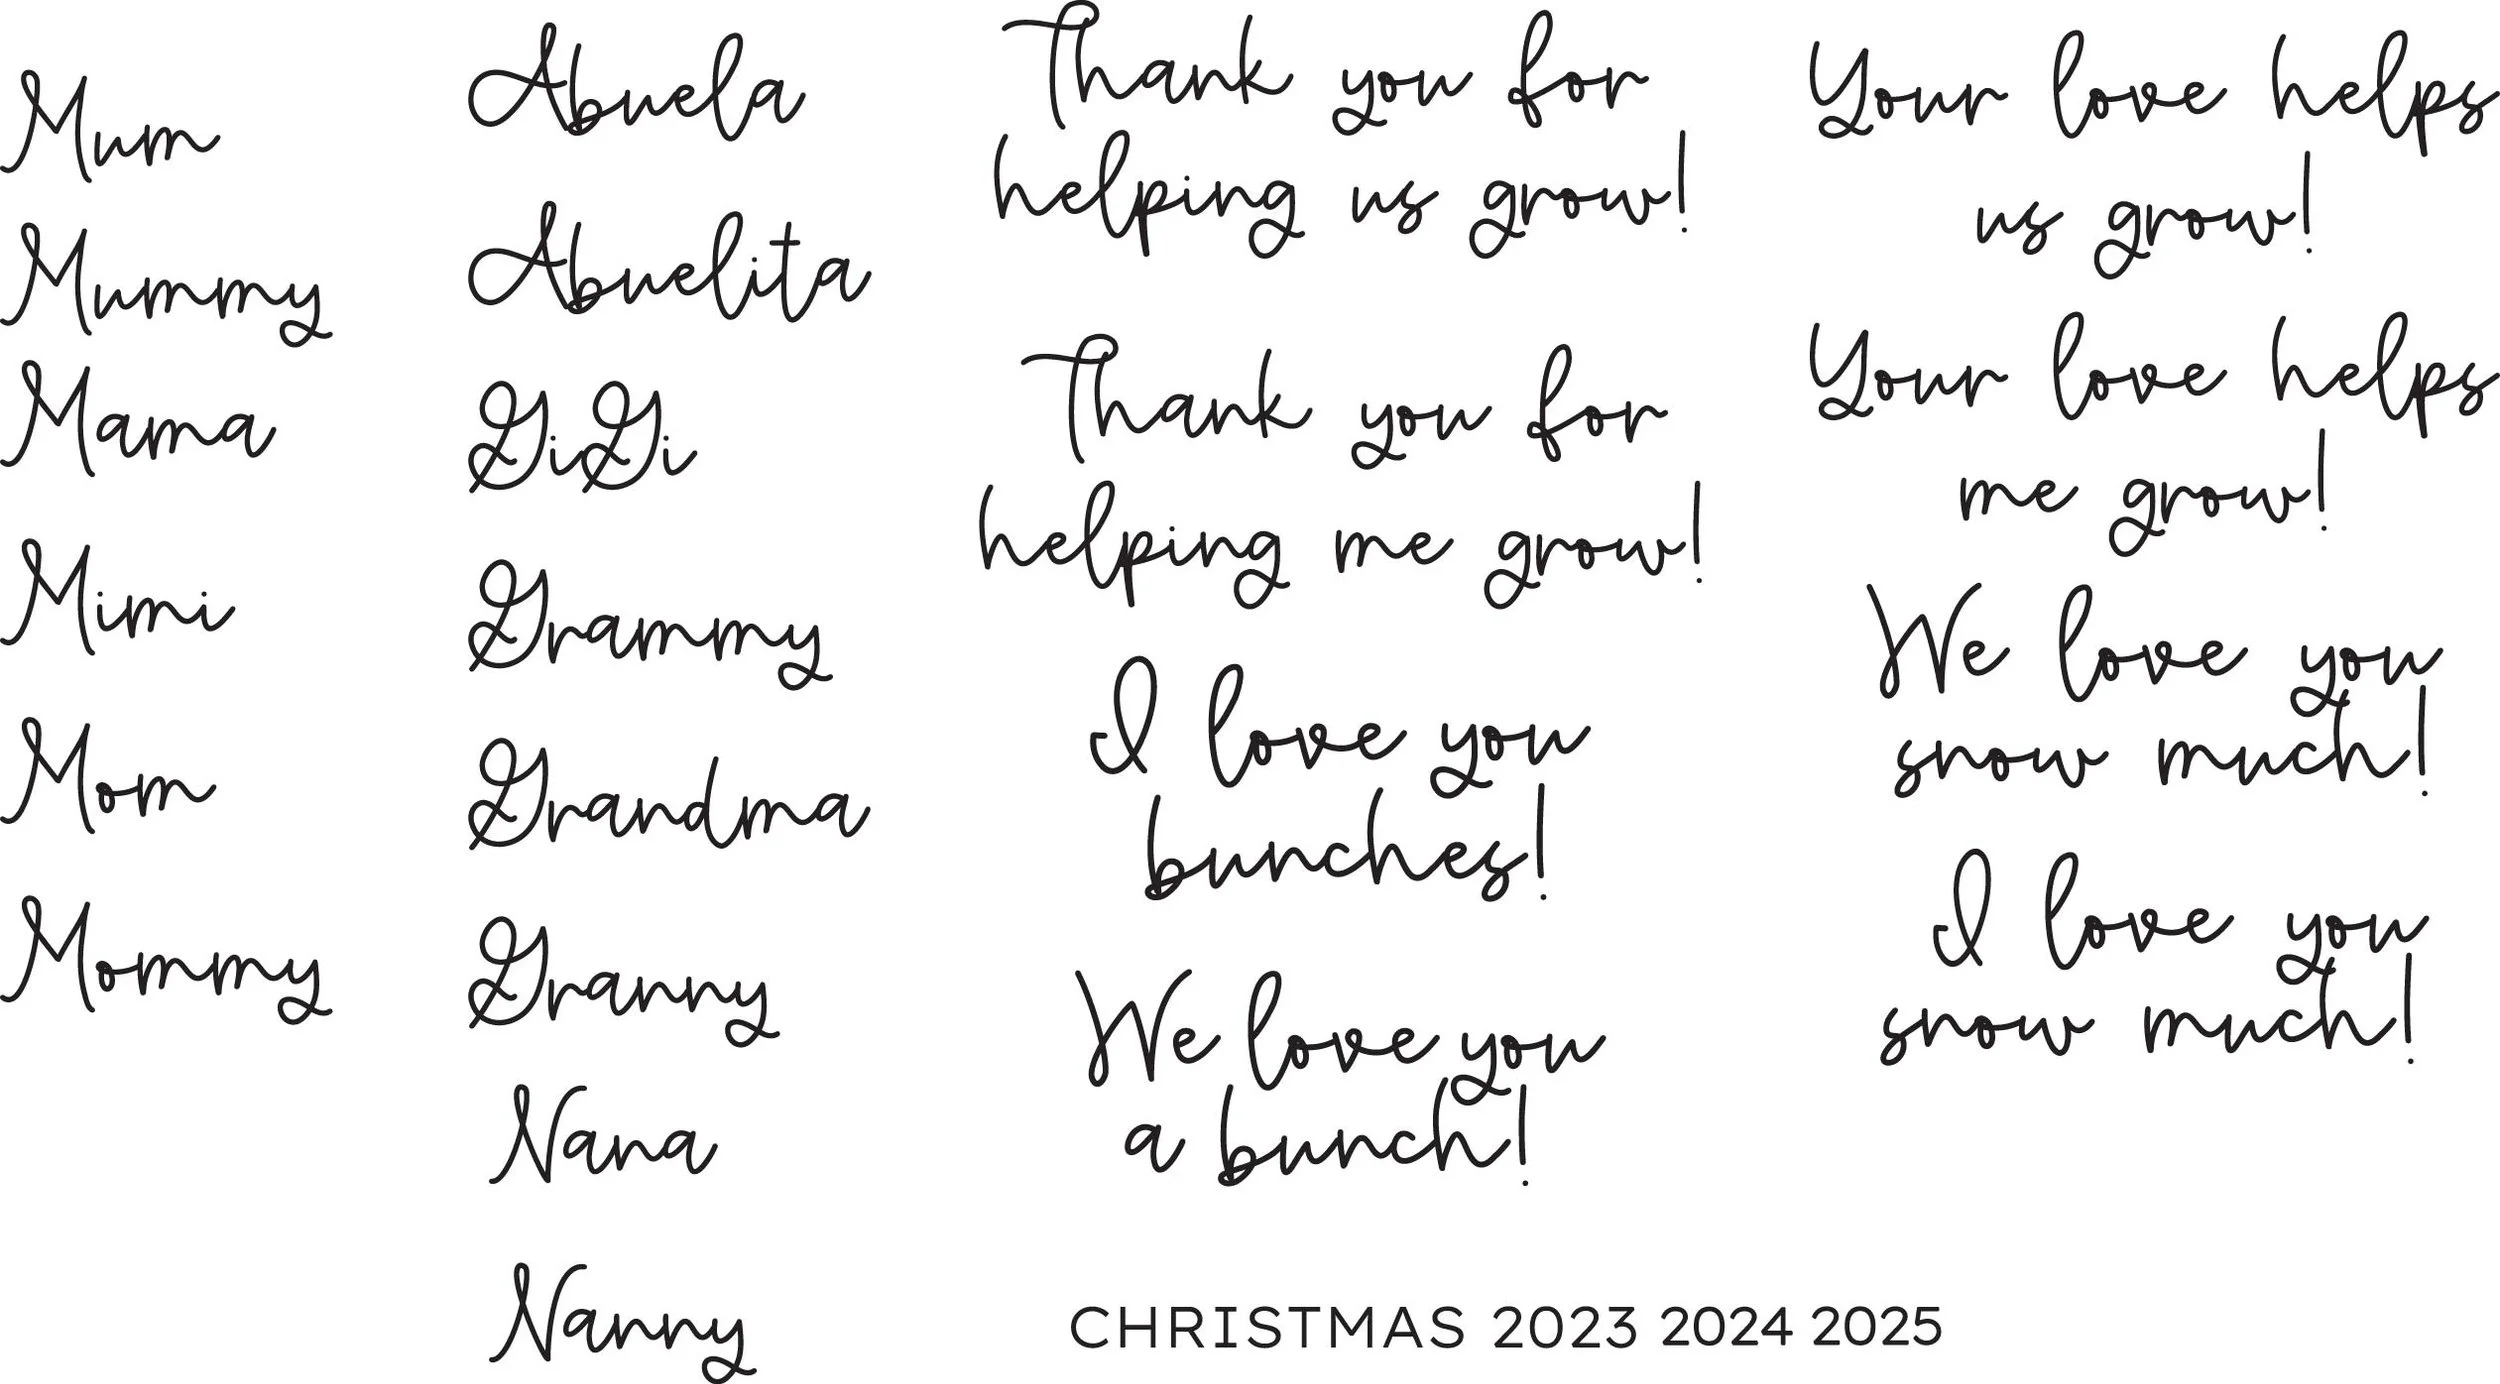 Mum
Mummy
Mama
Mimi
Mom
Mommy
Abuela
Abuelita
GiGi
Grammy
Grandma
Granny
Nana
Nanny
Thank you for
helping us grow!
Thank you for
helping me grow!
I love you
bunches!
We love you
a bunch!
Your love helps
us grow!
Your love helps
me grow!
We love you
snow much!
I love you
snow much!
CHRISTMAS 2023 2024 2025